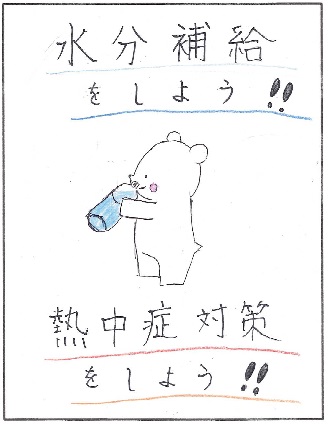 水分補給
をしよう!!
熱中症対策
をしよう!!